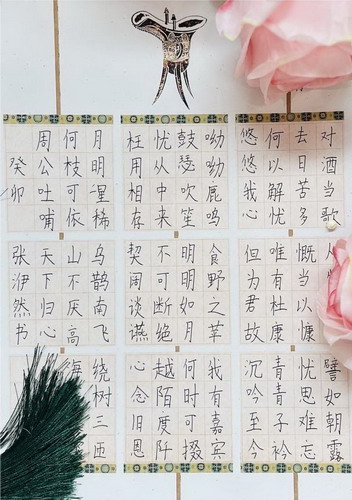 对酒当歌人譬如朝露
去日苦多慨当以慷忧思难忘
何以解忧唯有杜康青青子衿
悠悠我心但为君故沉吟至今
呦呦鹿鸣食野之苹我有嘉宾
鼓瑟吹笙明明如月何时可掇
忧从中来不可断绝越陌度阡
枉用相存契阔谈讌心念旧恩
月明星稀乌鹊南飞绕树三匝
何枝可依山不厌高海
周公吐哺天下归心
癸卯张洢然书